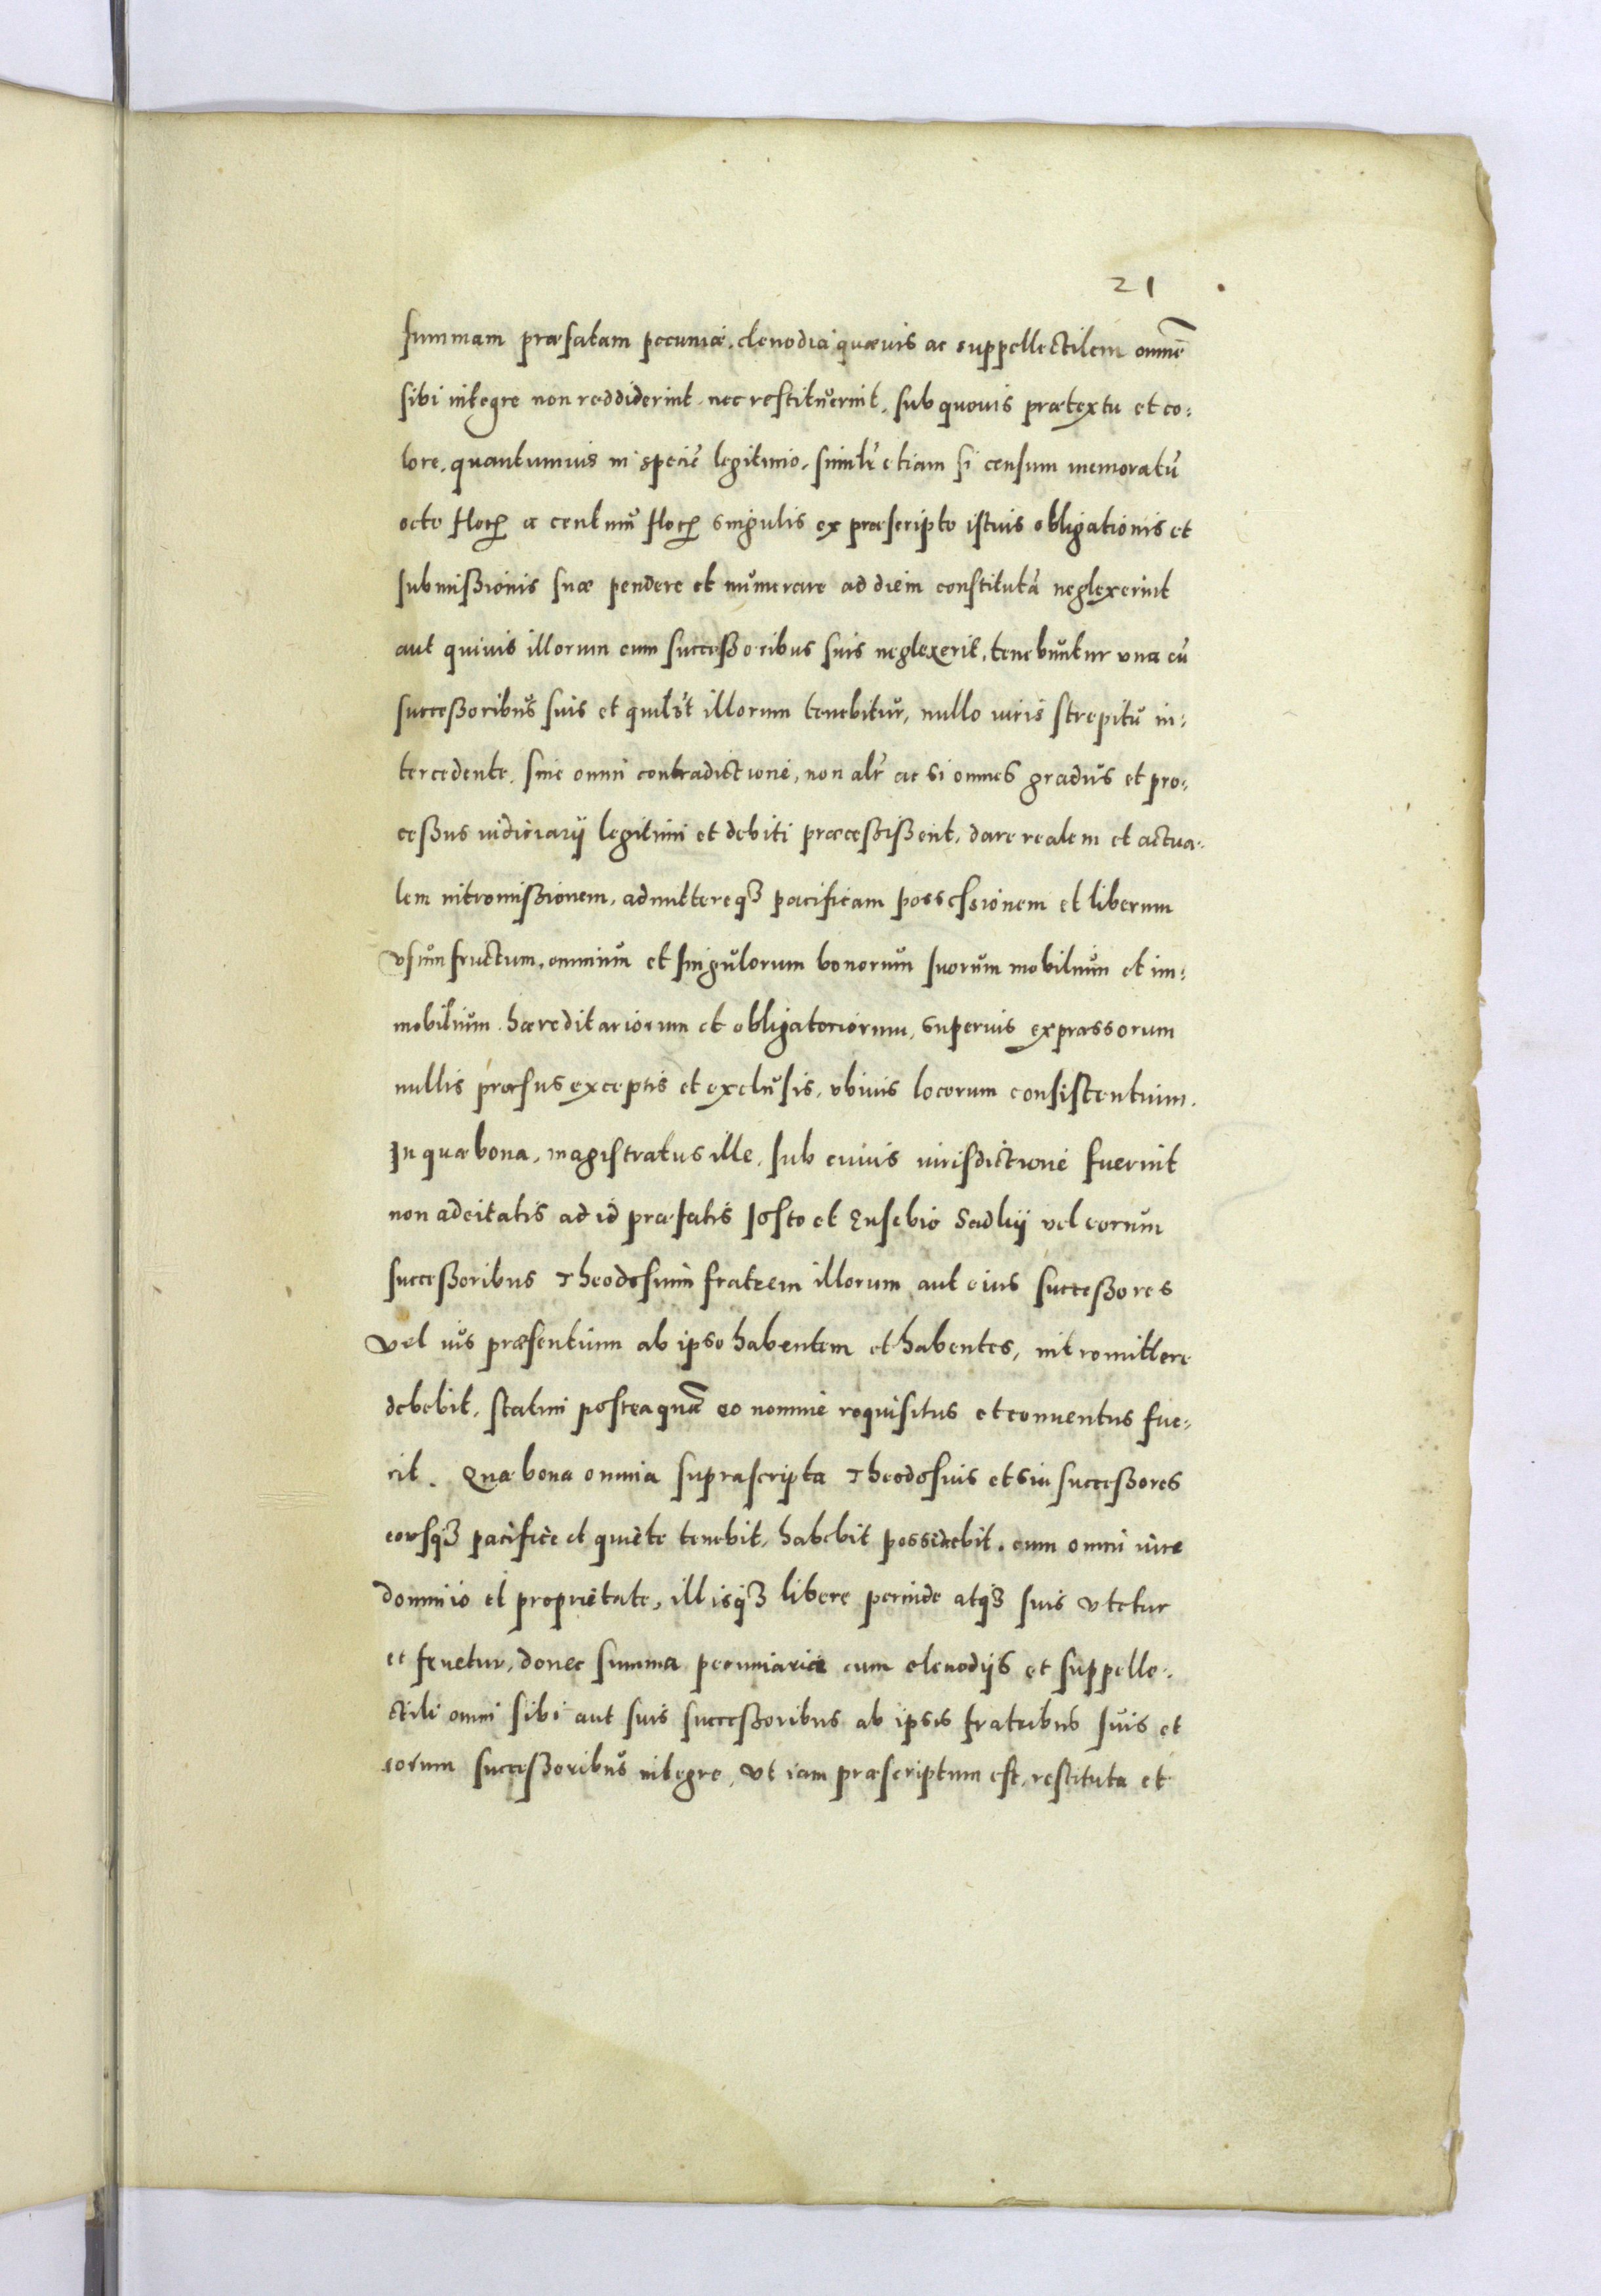 21
summam præfatam pecuniæ, clenodia quævis ac suppellectilem omnē
sibi integre non reddiderint nec restituerint, sub quovis prætextu et co-
lore, quantumvis in speciē legitimo, similr̄ etiam si censum memoratū
octo floꝝ a centum floꝝ singulis ex præscripto istius obligationis et
submissionis suæ pendere et numerare ad diem constitutā neglexerint
aut quivis illorum cum successoribus suis neglexerit, tenebuntur una cū
successoribus suis et quilꝫt illorum tenebitur, nullo iuris strepitu in-
tercedente, sine omni contradictione, non alr̄ ac si omnes gradus et pro-
cessus iudiciarii legitimi et debiti præcessissent, dare realem et actua-
lem intromissionem, admittereqꝫ pacificam possessionem et liberum
usumfructum, omnium et singulorum bonorum suorum mobilium et im-
mobilium hæreditariorum et obligatoriorum, superius expressorum
nullis prorsus exceptis et exclusis, ubivis locorum consistentium.
In quæ bona, magistratus ille, sub cuius iurisdictione fuerint
non adcitatis ad id præfatis Josto et Eusebio Sadlii vel eorum
successoribus Theodosium fratrem illorum aut eius successores
vel ius præsentium ab ipso habentem et habentes, intromittere
debebit, statim posteaquā eo nomine requisitus et conventus fue-
rit. Quæ bona omnia suprascripta Theodosius et sui successores
eousqꝫ pacifice et quiete tenebit, habebit possidebit, cum omni iure
dominio et proprietate, illisqꝫ libere perinde atqꝫ suis utetur
et fruetur, donec summa pecuniaria cum clenodiis et suppelle-
ctili omni sibi aut suis successoribus ab ipsis fratribus suis et
eorum successoribus integre, ut iam præscriptum est, restituta et